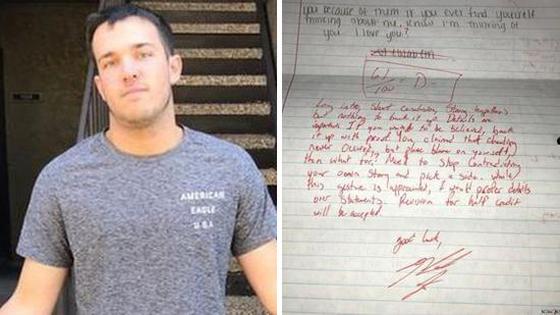 AMERICAN
EAGLE
USA
you because of them. If you ever find yourself
thinking about me, know I'm thinking of
you. I love you?
61/100 D-
Long intro, short conclusion, strong hypothesis
but nothing to back it up. Details are
important. If you want to be believed, back
it up with proof. You claimed that cheating
never occurred, but place blame on yourself
then what for? Need to stop contradicting
your own story and pick a side. While
this gesture is appreciated, I would prefer details
over statements. Revision for half credit
will be accepted.
good luck,